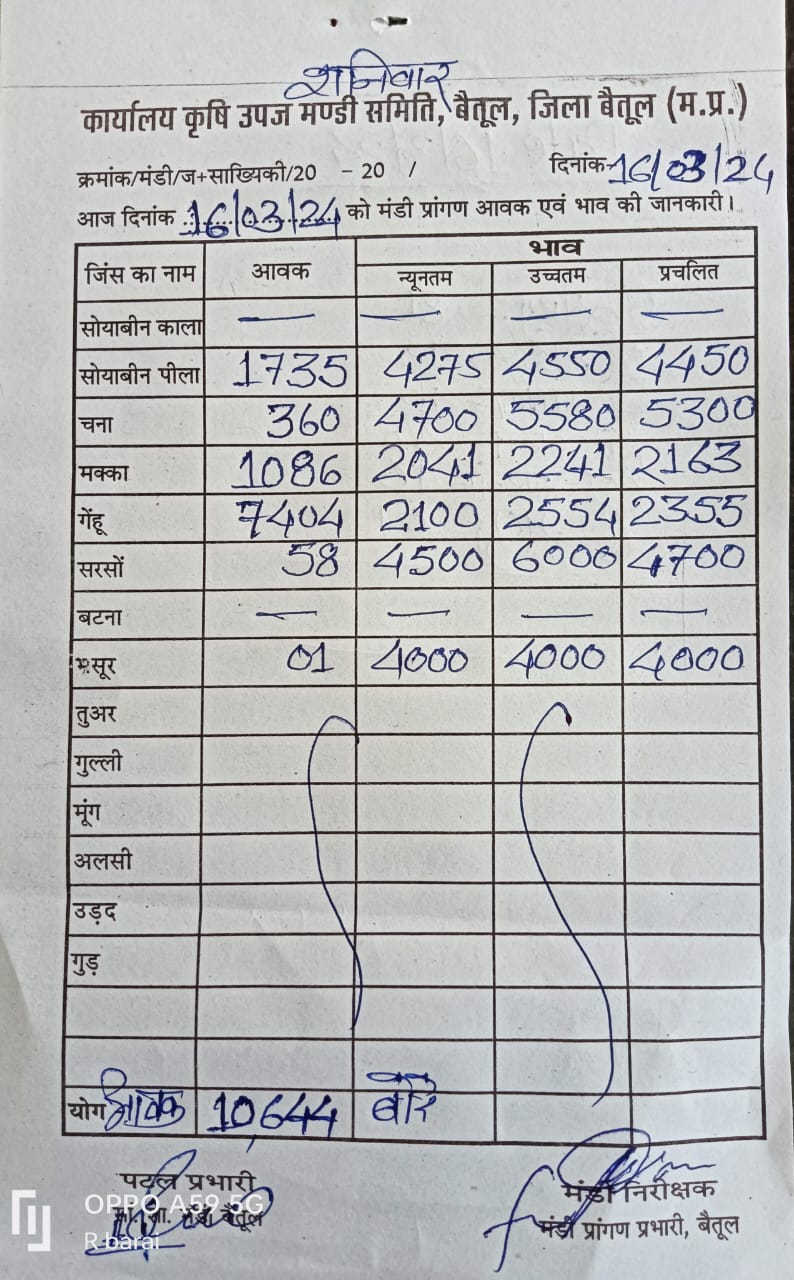 शनिवार
कार्यालय कृषि उपज मण्डी समिति, बैतूल, जिला बैतूल (म.प्र.)
क्रमांक/मंडी/ज+साख्यिकी/20 – 20 / दिनांक 16/03/24
आज दिनांक 16/03/24 को मंडी प्रांगण आवक एवं भाव की जानकारी।
जिंस का नाम आवक भाव
न्यूनतम उच्चतम प्रचलित
सोयाबीन काला — — — —
सोयाबीन पीला 1735 4275 4550 4450
चना 360 4700 5580 5300
मक्का 1086 2041 2241 2163
गेंहू 7404 2100 2554 2355
सरसों 58 4500 6000 4700
बटना — — — —
मसूर 01 4000 4000 4000
तुअर
गुल्ली
मूंग
अलसी
उड़द
गुड़
योग आवक 10,644 बोरे
पटल प्रभारी मंडी निरीक्षक
मंडी बैतूल मंडी प्रांगण प्रभारी, बैतूल
OPPO A59 5G
R barai